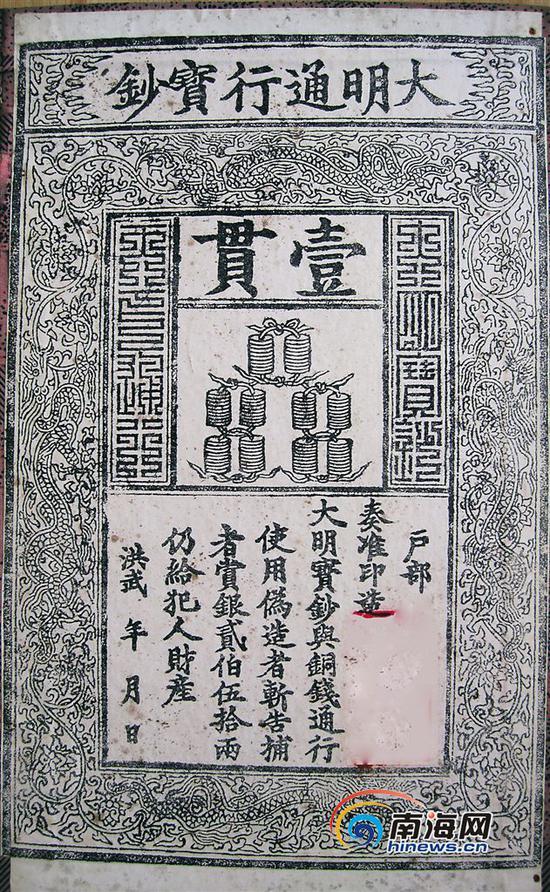 大明通行寶鈔
壹貫
戶部
奏准印造
大明寶鈔與銅錢通行
使用偽造者斬告捕
者賞銀貳伯伍拾兩
仍給犯人財產
洪武 年 月 日
南海网
hinews.cn